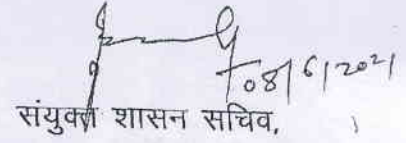 08/6/2021
संयुक्त शासन सचिव,